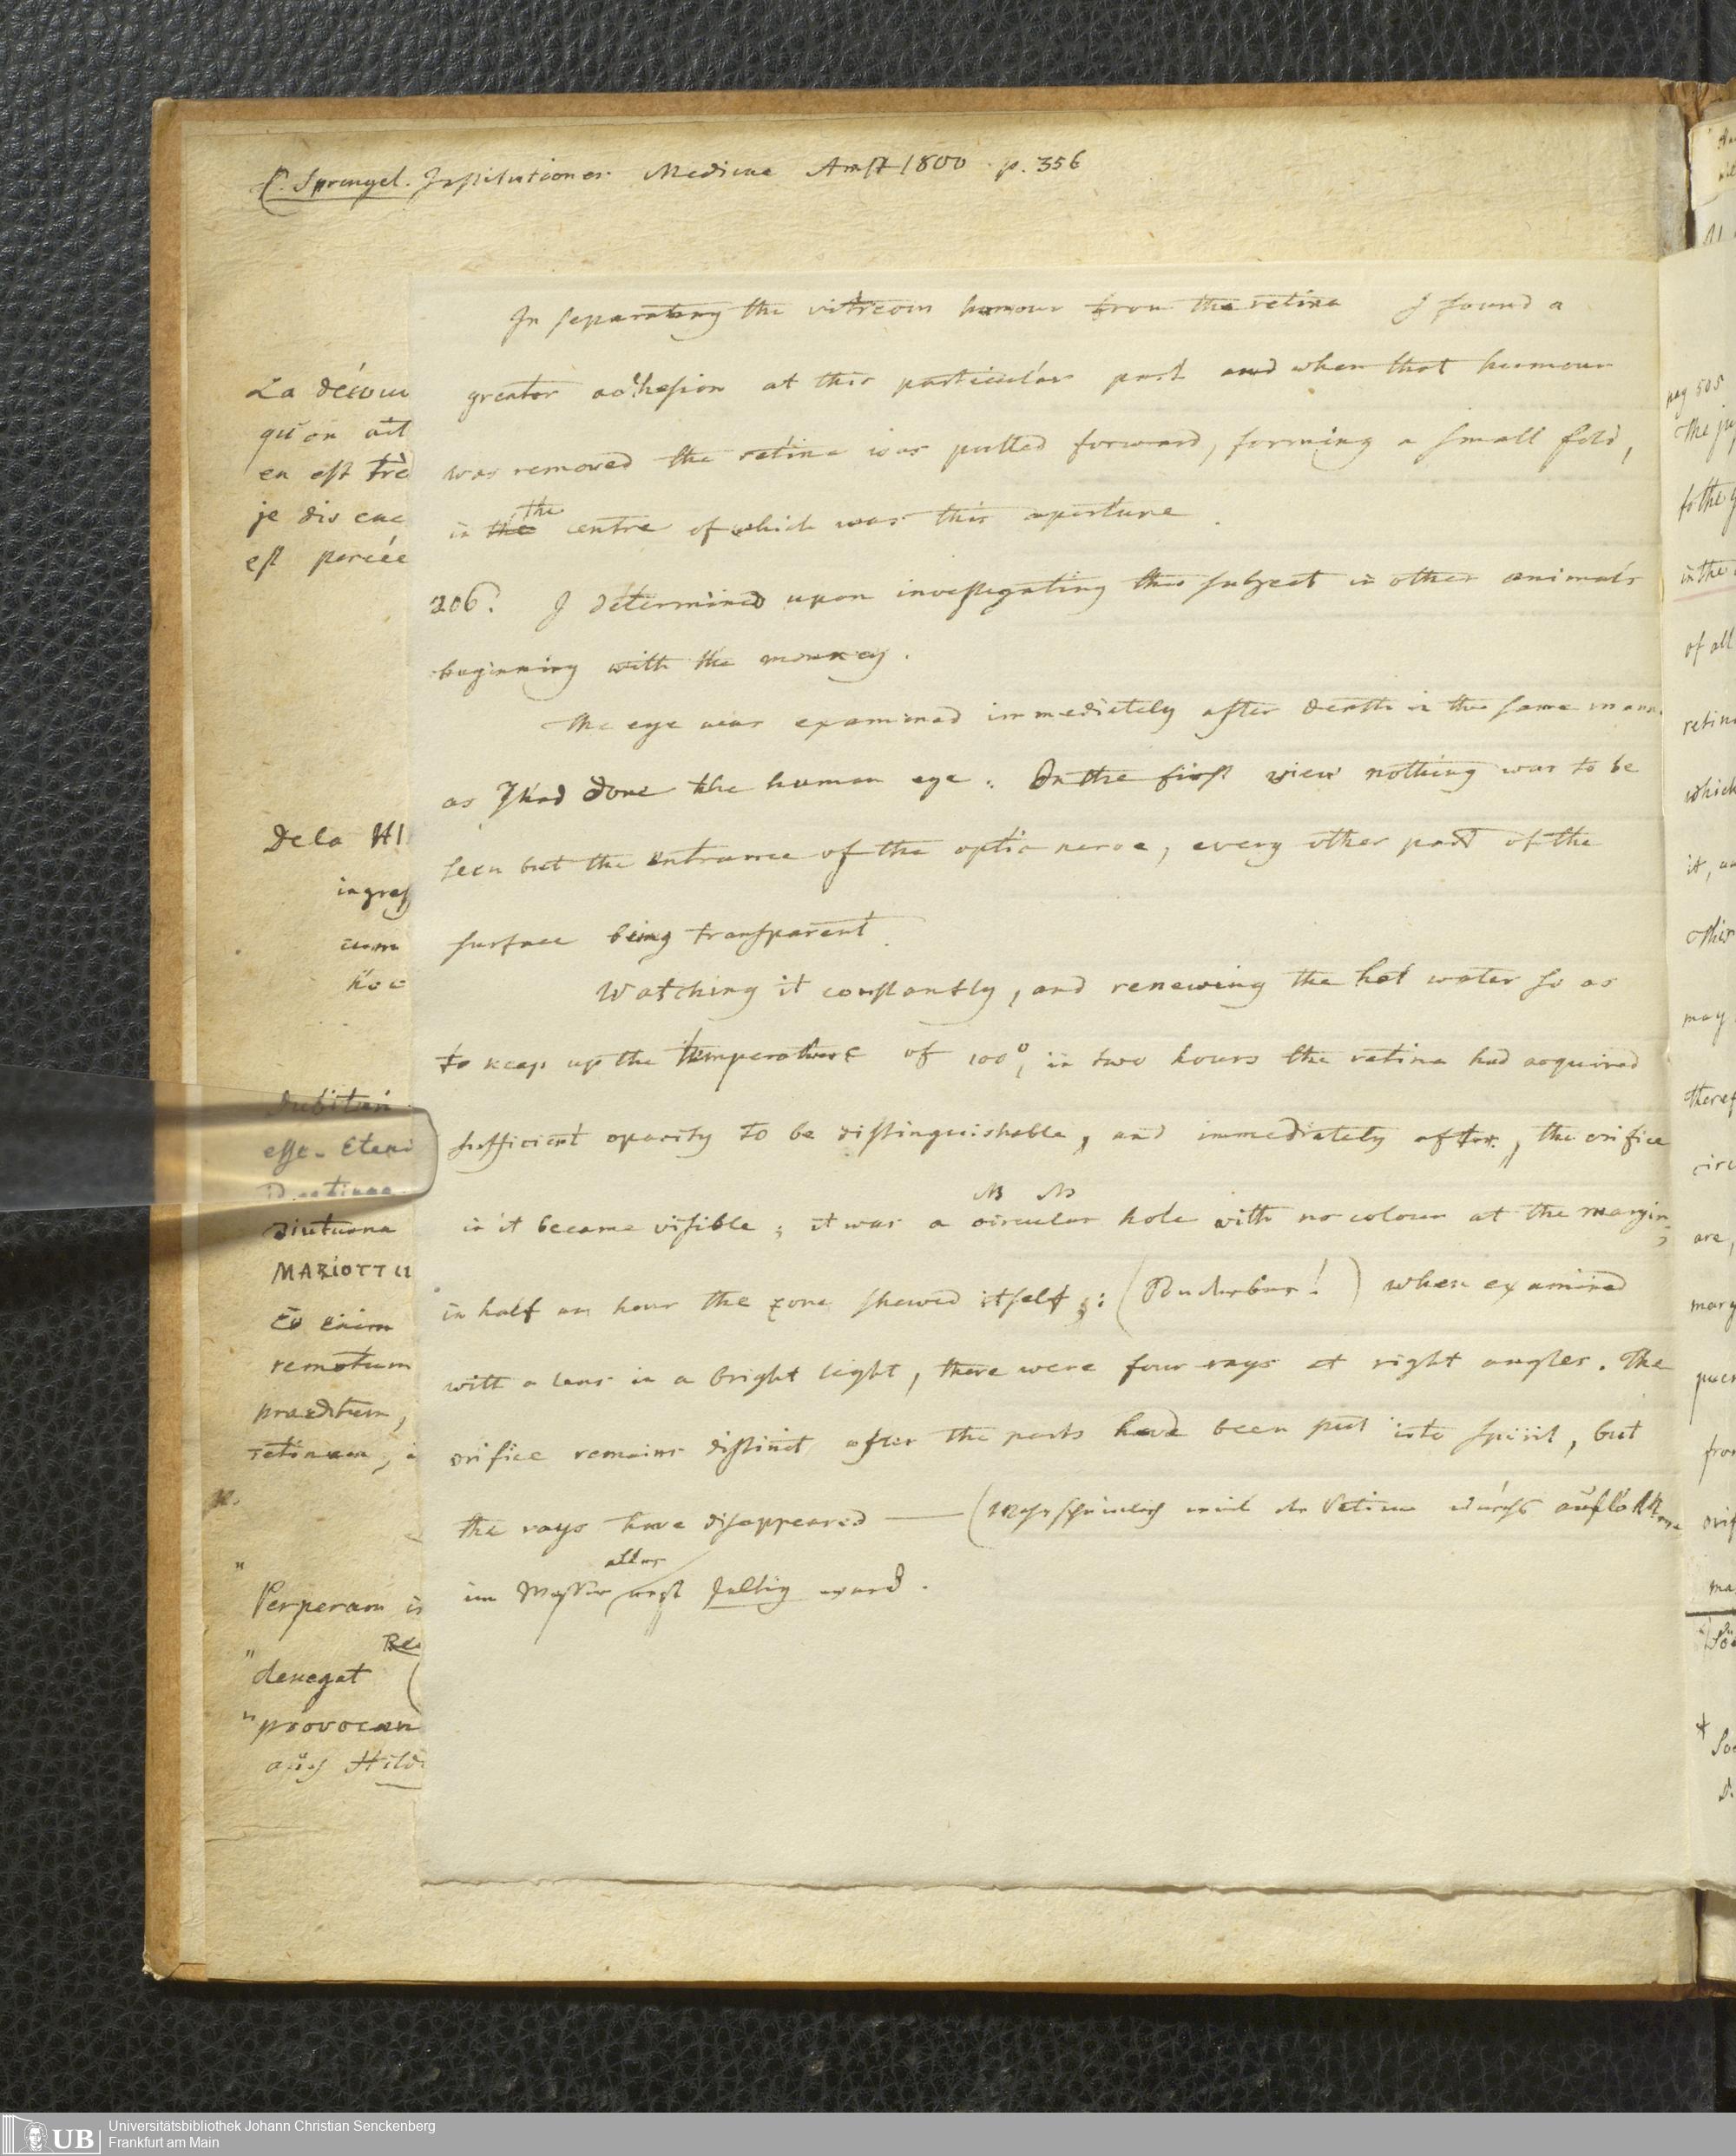 C. Sprengel. Institutiones Medicae Amst 1800 p. 356
La décou
qu'on ait
en est trè
je dis enc
est percée
De la HI
ingres
cum
hoc
Dubitari
esse. Eteni
diuturna
MARIOTTU
Eo enim
remotum
praeditum,
retinam, i
"Perperam i
"denegat
"provocan
aus Hild
In separating the vitreous humour from the retina I found a
greater adhesion at this particular part and when that humour
was removed the retina was pulled forward, forming a small fold,
in the the centre of which was this aperture.
206. I determined upon investigating this subject in other animals
beginning with the monkey.
The eye was examined immediately after death in the same mann
as I had done the human eye. On the first view nothing was to be
seen but the entrance of the optic nerve, every other part of the
surface being transparent.
Watching it constantly, and renewing the hot water so as
to keep up the temperature of 100°, in two hours the retina had acquired
sufficient opacity to be distinguishable, and immediately after, the orifice
NB NB
in it became visible; it was a circular hole with no colour at the margin;
in half an hour the zone shewed itself; : ( ! ) when examined
with a lens in a bright light, there were four rays at right angles. The
orifice remains distinct after the parts have been put into spirit, but
the rays have disappeared — ( wird die Retina
im Wasser faltig ward.
pag 505
to the
in the
of all
retin
which
it, a
This
may
theref
circ
are,
marg
Universitätsbibliothek Johann Christian Senckenberg
Frankfurt am Main
UB